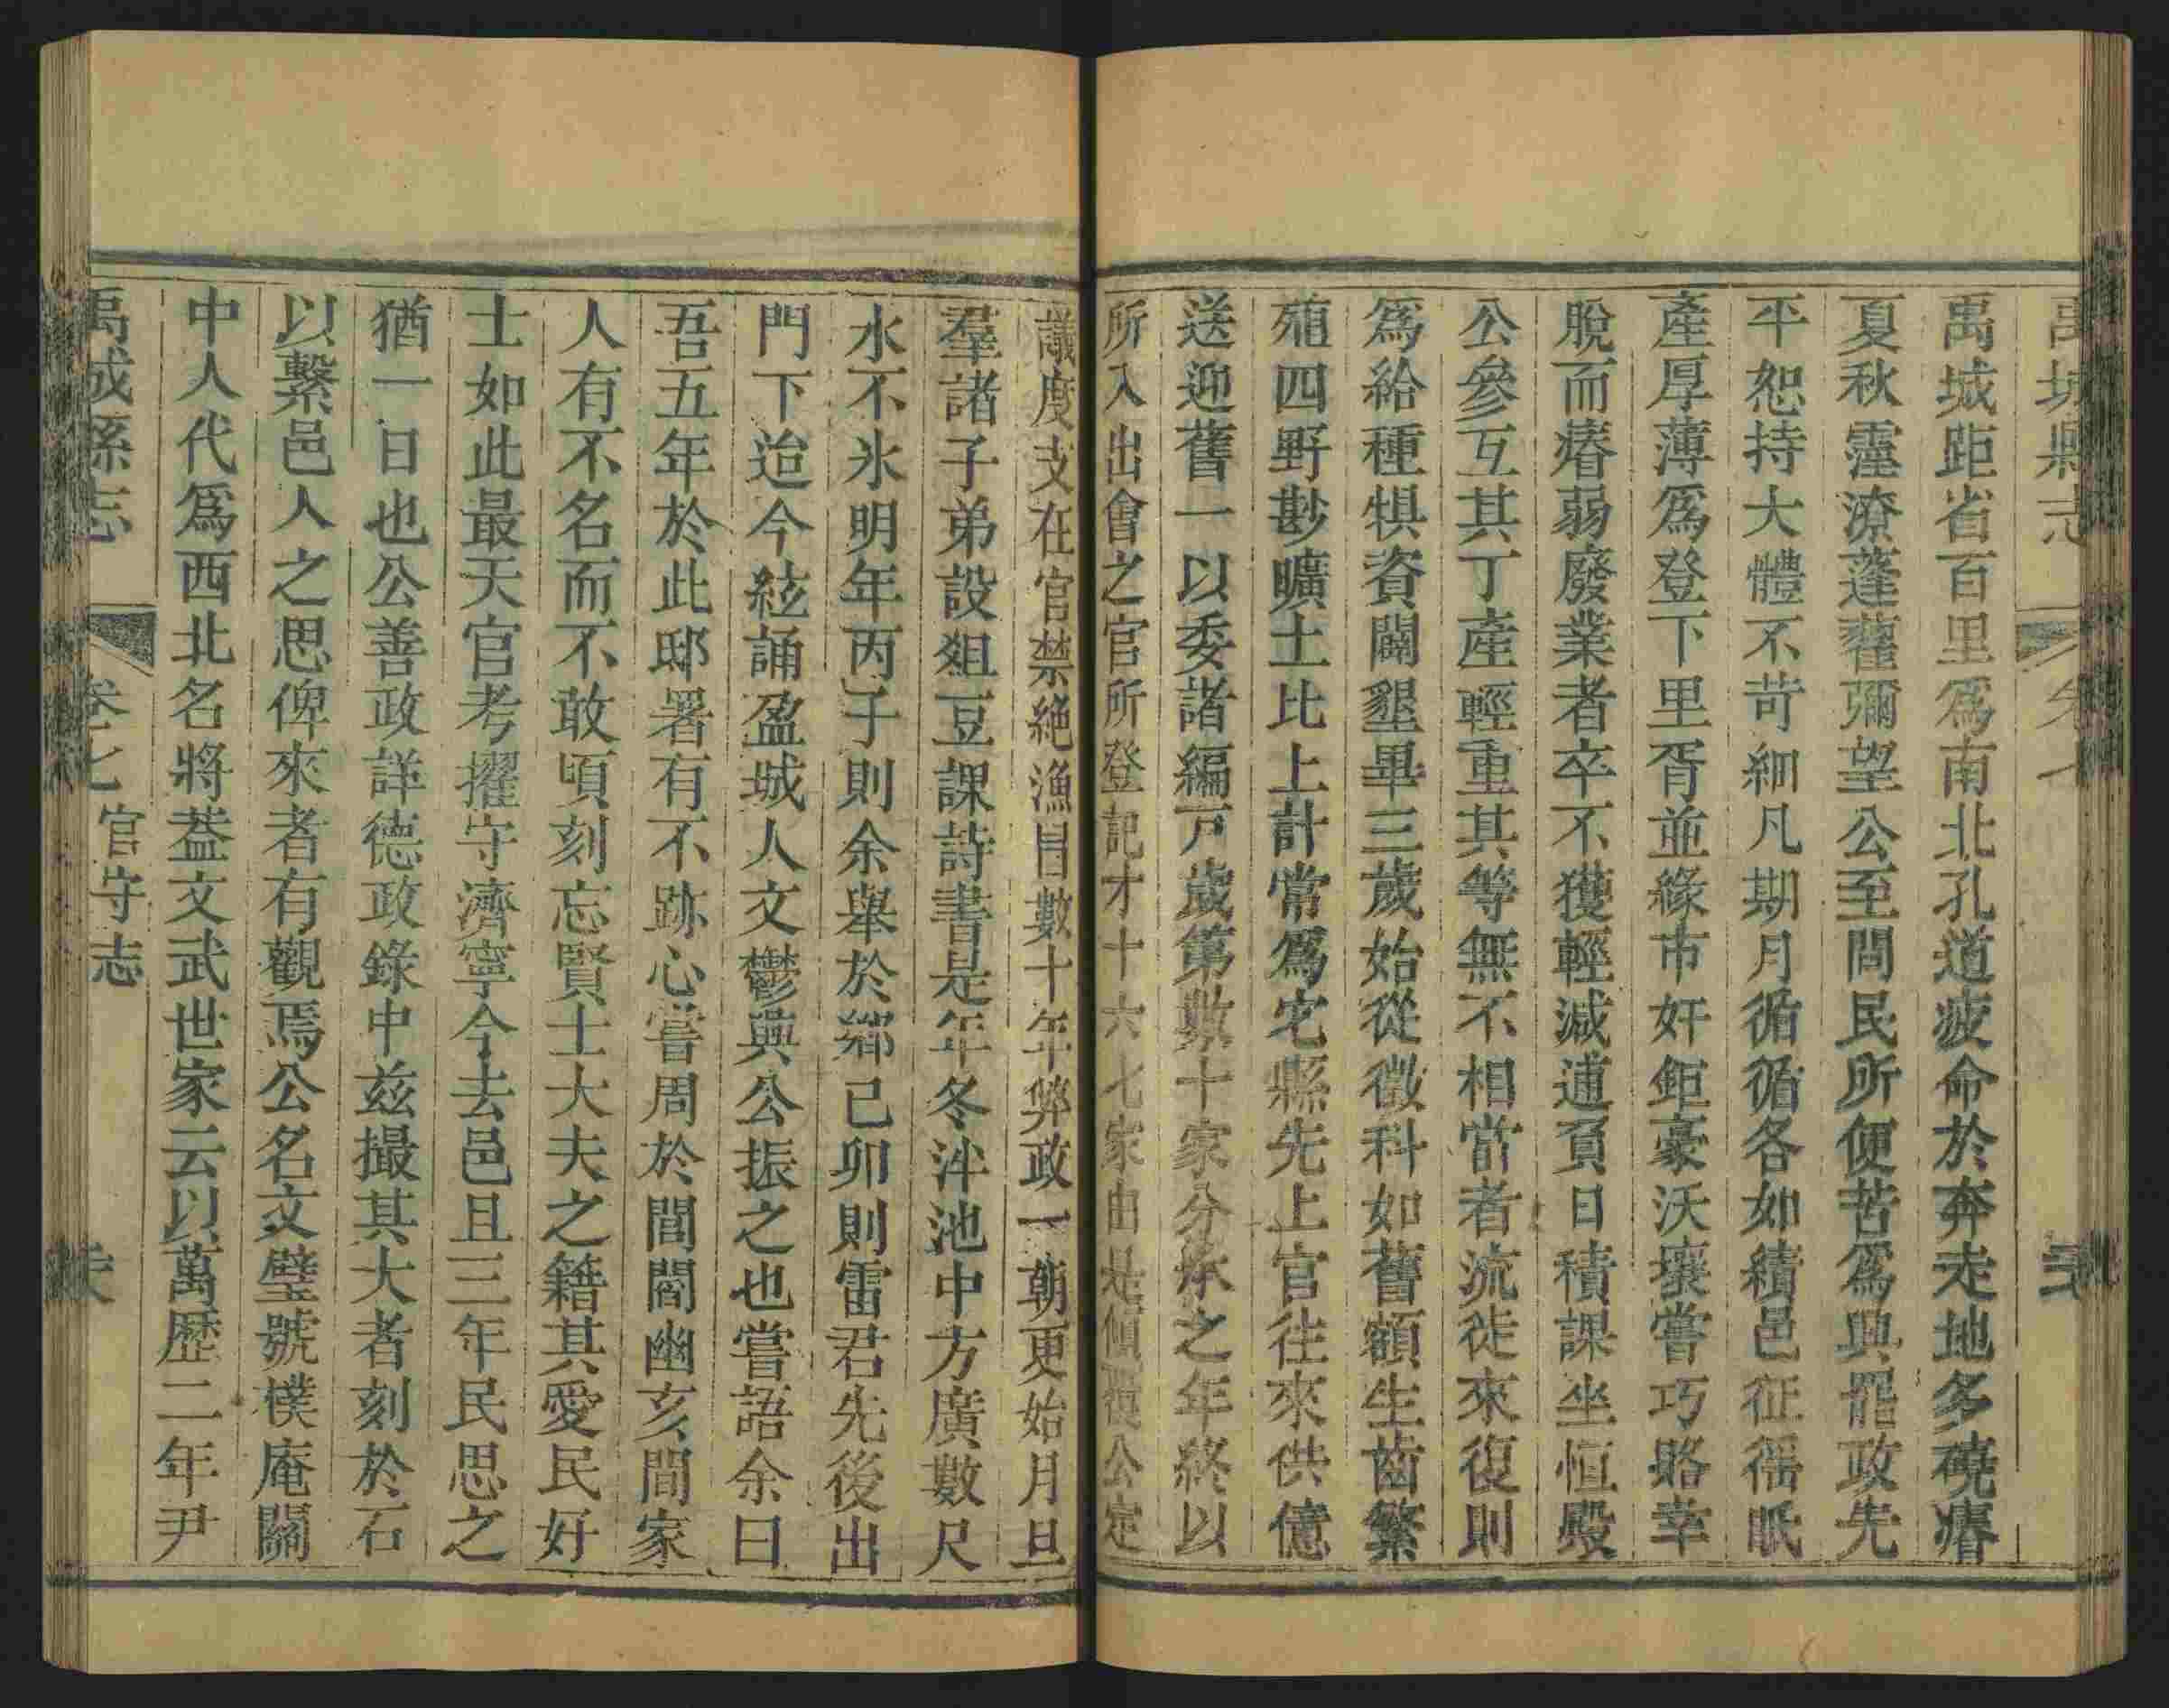 禹城縣志
卷七
禹城距省百里爲南北孔道疲命於奔走地多磽瘠
夏秋霪潦蓬藋彌望公至問民所便苦爲興罷政先
平恕持大體不苛細凡期月循循各如績邑征徭眂
產厚薄爲登下里胥並緣市奸鉅豪沃壤嘗巧賂幸
脫而瘠弱廢業者卒不獲輕減逋負日積課坐恒殿
公參互其丁產輕重其等無不相當者流徙來復則
爲給種犋資闢墾畢三歲始從徵科如舊額生齒繁
殖四野尠曠土比上計常爲它縣先上官往來供億
送迎舊一以委諸編戸歲第數十家分承之年終以
所入出會之官所登記才十六七家由是傾覆公定
議度支在官禁絕漁冒數十年弊政一朝更始月旦
羣諸子弟設俎豆課詩書是年冬泮池中方廣數尺
水不氷明年丙子則余舉於鄉己卯則雷君先後出
門下迨今絃誦盈城人文鬱興公振之也嘗語余曰
吾五年於此邸署有不跡心嘗周於閭閻幽亥間家
人有不名而不敢頃刻忘賢士大夫之籍其愛民好
士如此最天官考擢守濟寧今去邑且三年民思之
猶一日也公善政詳德政錄中兹撮其大者刻於石
以繫邑人之思俾來者有觀焉公名文璧號樸庵關
中人代爲西北名將葢文武世家云以萬歷二年尹
禹城縣志
卷七
官守志